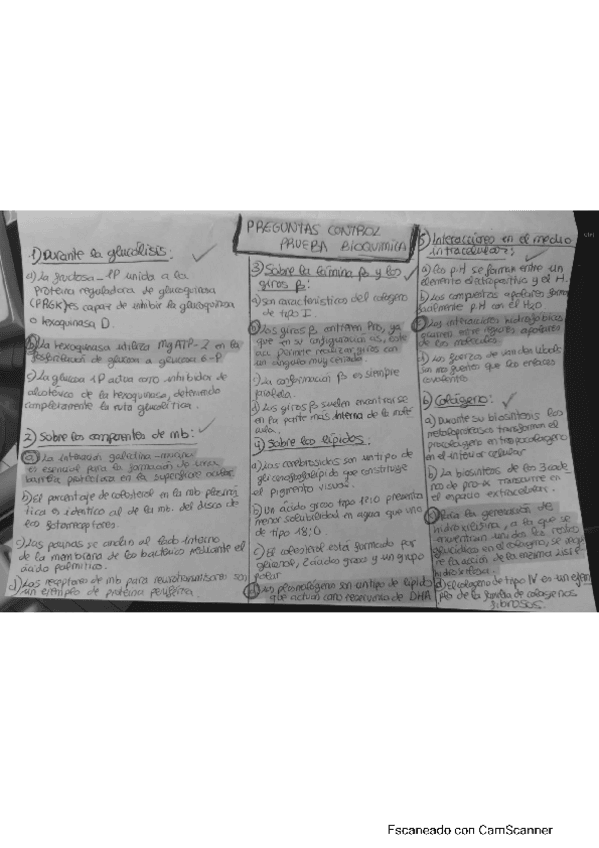 PREGUNTAS CONTROL
PRUEBA BIOQUIMICA
1) Durante la glucólisis:
a) La fructosa-1P unida a la
Proteína reguladora de glucoquinasa
(PRGK) es capaz de inhibir la glucoquinasa
o hexoquinasa D.
b) La hexoquinasa utiliza MgATP-2 en la
fosforilación de glucosa a glucosa 6-P
c) La glucosa 1P actua como inhibidor
alostérico de la hexoquinasa, deteniendo
completamente la ruta glucolítica.
2) Sobre los componentes de mb:
a) La interacción galectina-mucina
es esencial para la formación de una
barrera protectora en la superficie
b) El porcentaje de colesterol en la mb plasmá
tica es identico al de la mb. del disco de
los fotorreceptores.
c) Las porinas se anclan al lado interno
de la membrana de las bacterias mediante el
ácido palmítico.
d) Los receptores de mb para neurotransmisores son
un ejemplo de proteína periférica.
3) Sobre la lámina β y los
giros β:
a) son característicos del colágeno
de tipo I.
b) Los giros β contienen Pro, ya
que en su configuración cis, este
aac permite realizar giros con
un ángulo muy cerrado.
c) La conformación β es siempre
paralela.
d) Los giros β suelen encontrarse
en la parte más interna de la
4) Sobre los lípidos:
a) Los cerebrósidos son un tipo de
glicoesfingolípido que constituye
el pigmento visual.
b) Un ácido graso tipo 18:0 presenta
menor solubilidad en agua que uno
de tipo 18:0
c) El colesterol está formado por
glicerol, 2 ácidos grasos y un grupo
polar
d) Los plasmalógenos son un tipo de lípido
que actúan como reservorio de DHA
5) Interacciones en el medio
intracelular:
a) los pH se forman entre un
elemento electropositivo y el H.
b) Los compuestos apolares forman
fácilmente p.H con el H2O
c) Las interacciones hidrofóbicas
ocurren entre grupos apolares
de las moléculas.
d) Las fuerzas de van der Waals
son más fuertes que los enlaces
covalentes
6) Colágeno:
a) Durante su biosíntesis las
metaloproteasas transforman el
procolágeno en tropocolágeno
en el interior celular
b) La biosíntesis de las 3 cade
nas de pro-α transcurre en
el espacio extracelular.
c) Para la generación de
hidroxilisina, a la que se
encuentran unidos los restos
glucídicos en el colágeno, se
la acción de la enzima lisil
hidroxilasa.
d) El colágeno de tipo IV es un ejem
plo de la familia de colágenos
fibrosos.
Escaneado con CamScanner